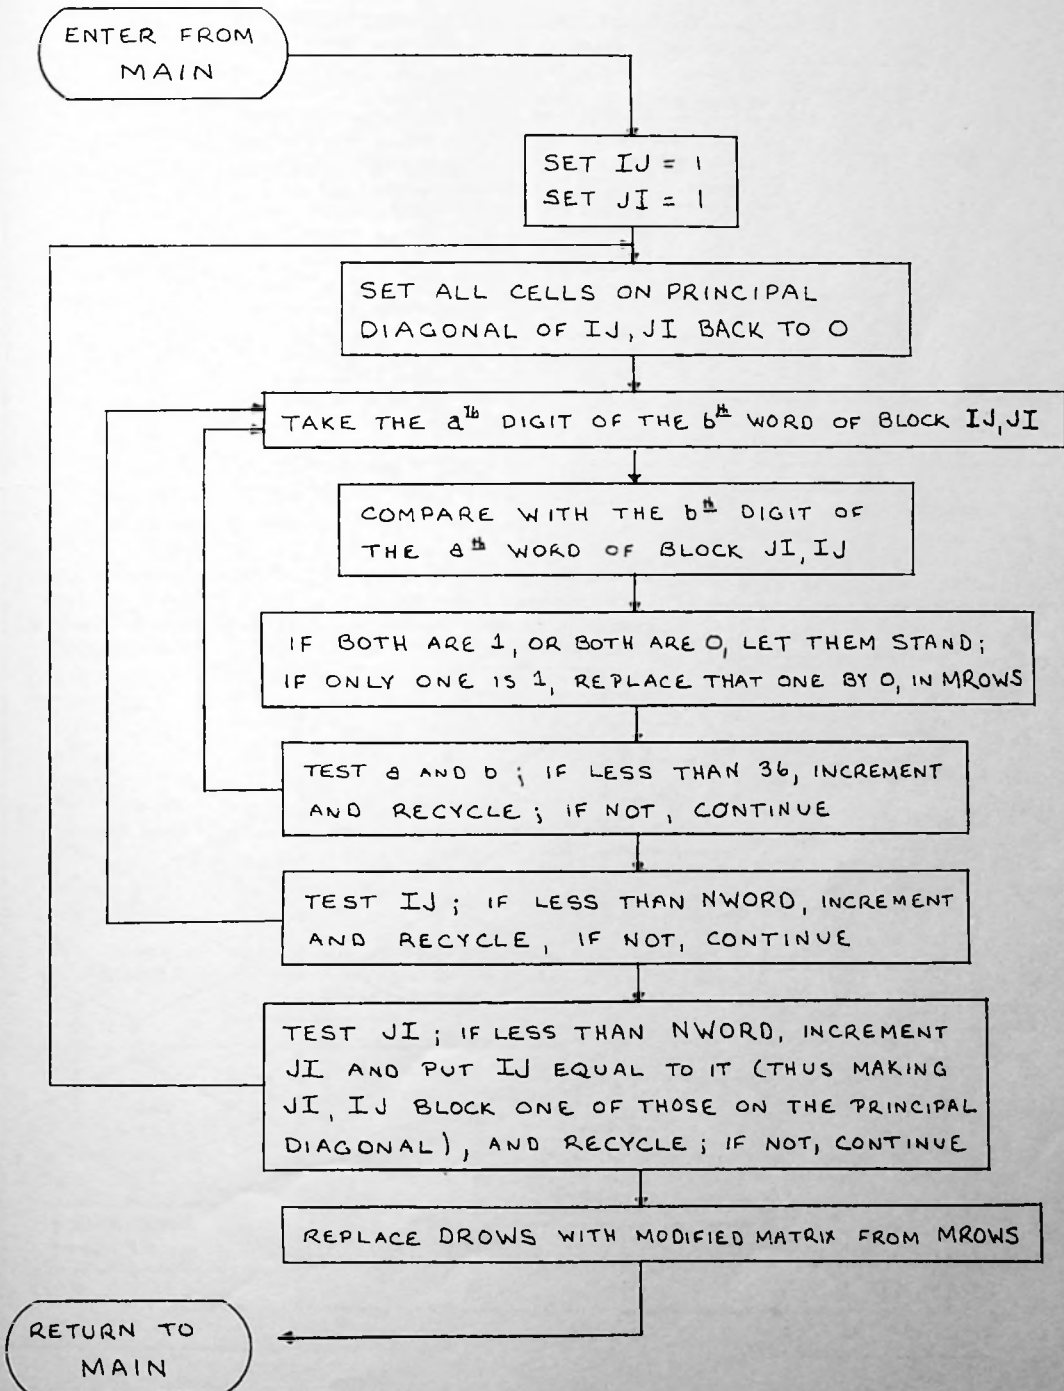 ENTER FROM
MAIN
SET IJ = 1
SET JI = 1
SET ALL CELLS ON PRINCIPAL
DIAGONAL OF IJ, JI BACK TO 0
TAKE THE a^th DIGIT OF THE b^th WORD OF BLOCK IJ, JI
COMPARE WITH THE b^th DIGIT OF
THE a^th WORD OF BLOCK JI, IJ
IF BOTH ARE 1, OR BOTH ARE 0, LET THEM STAND;
IF ONLY ONE IS 1, REPLACE THAT ONE BY 0, IN MROWS
TEST a AND b ; IF LESS THAN 36, INCREMENT
AND RECYCLE ; IF NOT, CONTINUE
TEST IJ ; IF LESS THAN NWORD, INCREMENT
AND RECYCLE, IF NOT, CONTINUE
TEST JI ; IF LESS THAN NWORD, INCREMENT
JI AND PUT IJ EQUAL TO IT (THUS MAKING
JI, IJ BLOCK ONE OF THOSE ON THE PRINCIPAL
DIAGONAL), AND RECYCLE ; IF NOT, CONTINUE
REPLACE DROWS WITH MODIFIED MATRIX FROM MROWS
RETURN TO
MAIN